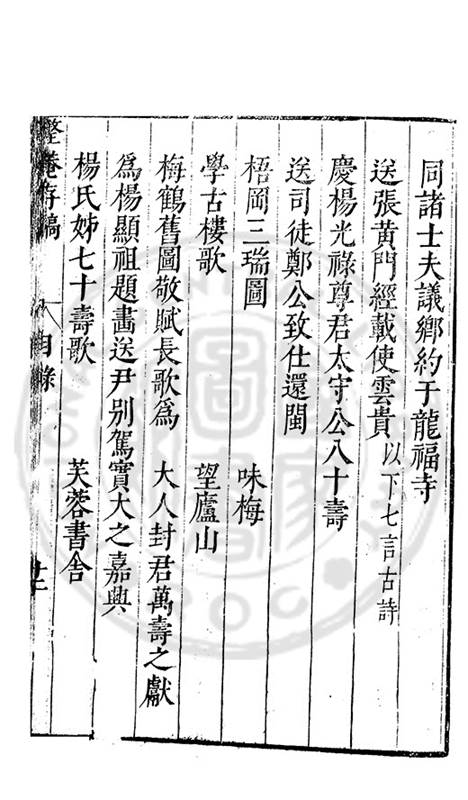 同諸士夫議鄉約于龍福寺
送張黃門經載使雲貴 以下七言古詩
慶楊光祿尊君太守公八十壽
送司徒鄭公致仕還閩
梧岡三瑞圖 味梅
學古樓歌 望廬山
梅鶴舊圖敬賦長歌為 大人封君萬壽之獻
為楊顯祖題畫送尹別駕實大之嘉興
楊氏姊七十壽歌 芙蓉書舍
存稿 目錄